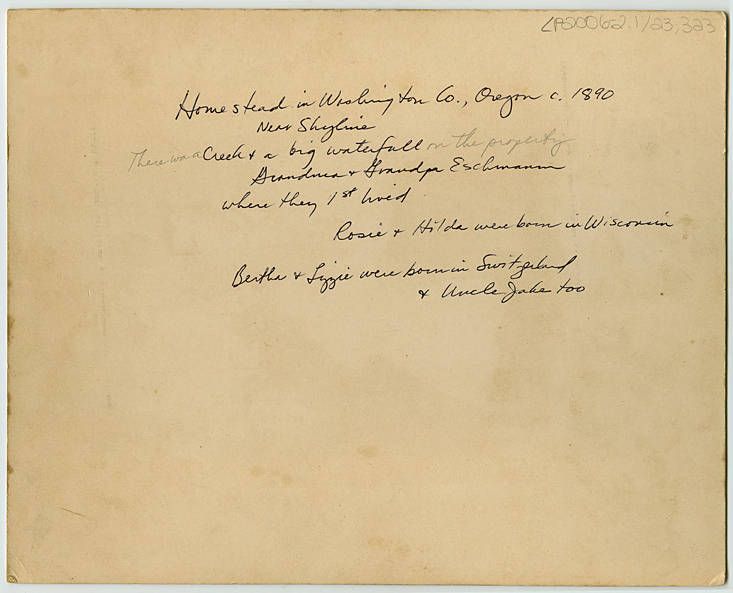 LPS00652.1/23,323
Homestead in Washington Co., Oregon c. 1890
Near Skyline
There was a Creek & a big waterfall on the property
Grandma & Grandpa Eschmann
where they 1st lived
Rosie & Hilda were born in Wisconsin
Bertha & Lizzie were born in Switzerland
& Uncle Jake too